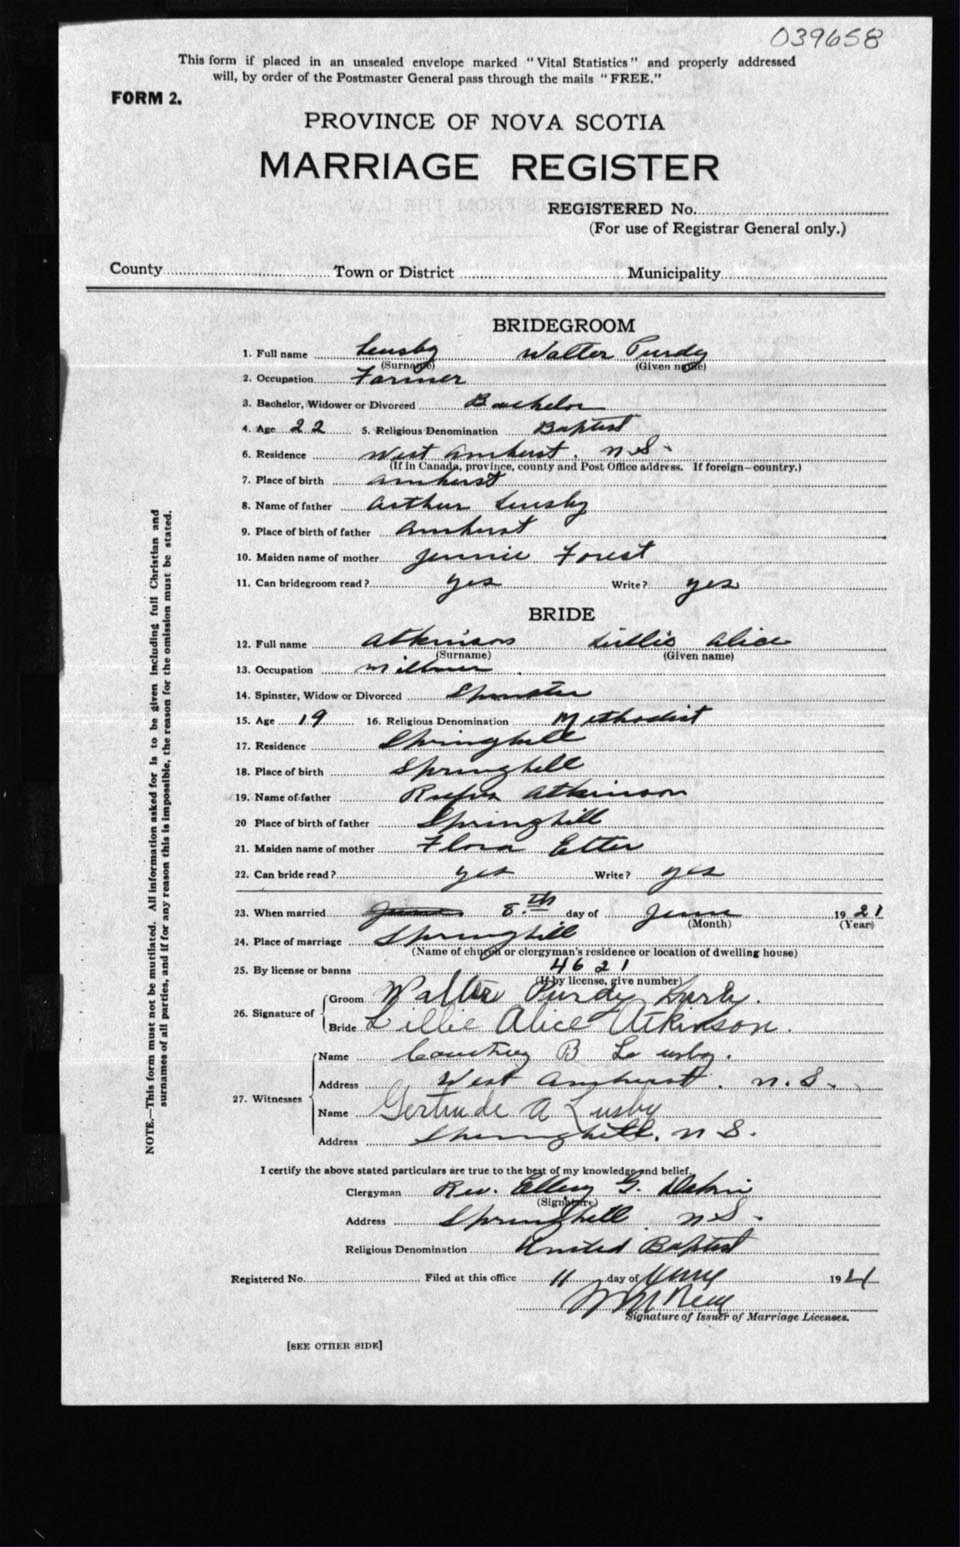 039658
This form if placed in an unsealed envelope marked "Vital Statistics" and properly addressed
will, by order of the Postmaster General pass through the mails "FREE."
FORM 2.
PROVINCE OF NOVA SCOTIA
MARRIAGE REGISTER
REGISTERED No.
(For use of Registrar General only.)
County Town or District Municipality
BRIDEGROOM
1. Full name Lusby Walter Purdy
(Surname) (Given name)
2. Occupation Farmer
3. Bachelor, Widower or Divorced Bachelor
4. Age 22 5. Religious Denomination Baptist
6. Residence West Amherst. N.S.
(If in Canada, province, county and Post Office address. If foreign—country.)
7. Place of birth Amherst
8. Name of father Arthur Lusby
9. Place of birth of father Amherst
10. Maiden name of mother Jennie Forest
11. Can bridegroom read? yes Write? yes
BRIDE
12. Full name Atkinson Lillie Alice
(Surname) (Given name)
13. Occupation Milliner
14. Spinster, Widow or Divorced Spinster
15. Age 19 16. Religious Denomination Methodist
17. Residence Springhill
18. Place of birth Springhill
19. Name of father Rufus Atkinson
20 Place of birth of father Springhill
21. Maiden name of mother Flora Etter
22. Can bride read? yes Write? yes
23. When married 8.th day of June 1921
(Month) (Year)
24. Place of marriage Springhill
(Name of church or clergyman's residence or location of dwelling house)
25. By license or banns 4621
(If by license, give number)
26. Signature of
Groom Walter Purdy Lusby.
Bride Lillie Alice Atkinson.
27. Witnesses
Name Courtney B Lusby.
Address West Amherst. N.S.
Name Gertrude A Lusby
Address Springhill. N S.
I certify the above stated particulars are true to the best of my knowledge and belief.
Clergyman Rev. Ellery G. Dakin
(Signature)
Address Springhill N.S.
Religious Denomination United Baptist
Registered No. Filed at this office 11 day of June 1921
Signature of Issuer of Marriage Licenses.
[SEE OTHER SIDE]
NOTE.—This form must not be mutilated. All information asked for is to be given including full Christian and
surnames of all parties, and if for any reason this is impossible, the reason for the omission must be stated.